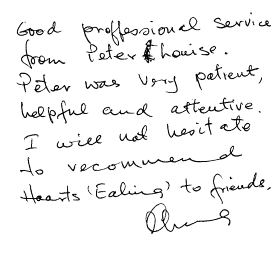 Good proffessional service
from Peter & Louise.
Peter was very patient,
helpful and attentive.
I will not hesitate
to recommend
Haarts 'Ealing' to friends.